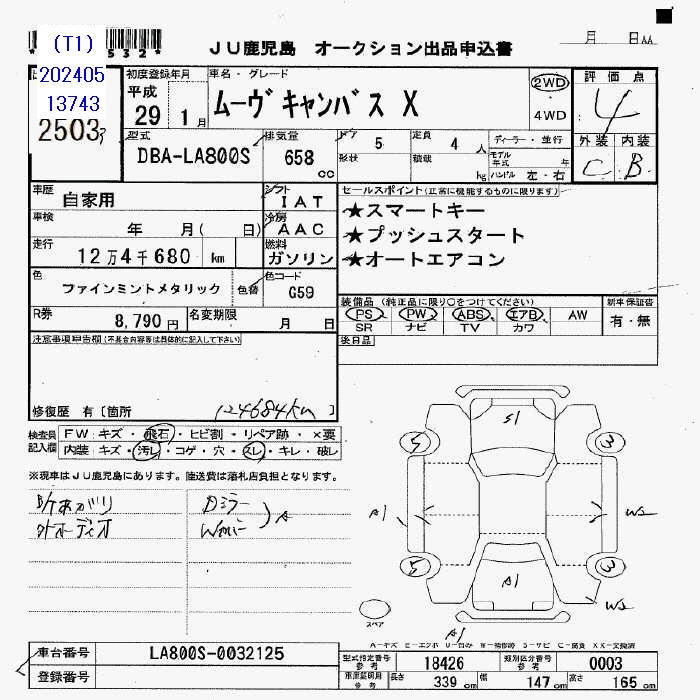 (T1)
202405
13743
2503
532*
JU鹿児島 オークション出品申込書
月 日 AA
初度登録年月
平成
29 1月
車名・グレード
ムーヴキャンバス X
2WD
4WD
評価点
4
外装 内装
C B
型式
DBA-LA800S
排気量
658 cc
ドア 5
形状
定員 4 人
積載 kg
ディーラー・並行
モデル年式 年
ハンドル 左・右
車歴 自家用
シフト IAT
車検 年 月( 日)
冷房 AAC
走行 12万4千680 km
燃料 ガソリン
セールスポイント(正常に機能するものに限ります)
★スマートキー
★プッシュスタート
★オートエアコン
色 ファインミントメタリック 色替
色コード G59
R券 8,790円
名変期限 月 日
装備品(純正品に限り○をつけてください)
PS PW ABS エアB AW
SR ナビ TV カワ
新車保証書
有・無
後日品
注意事項申告欄(不具合内容等は具体的に記入して下さい)
修復歴 有〔箇所 〕
124684km
検査員記入欄
FW:キズ・飛石・ヒビ割・リペア跡・×要
内装:キズ・汚レ・コゲ・穴・スレ・キレ・破レ
※現車はJU鹿児島にあります。陸送費は落札店負担となります。
B/Tあがり
外オーディオ
Dミラー
Wカバー
A
S1
5 3
A1 W2
5 3
A1
W2
スペア
A1
A-キズ E-エクボ U-凹み W-補修跡 S-サビ C-腐食 XX-交換済
車台番号 LA800S-0032125
登録番号
型式指定番号 参考 18426
類別区分番号 参考 0003
車庫証明用 参考 長さ 339cm 幅 147cm 高さ 165cm